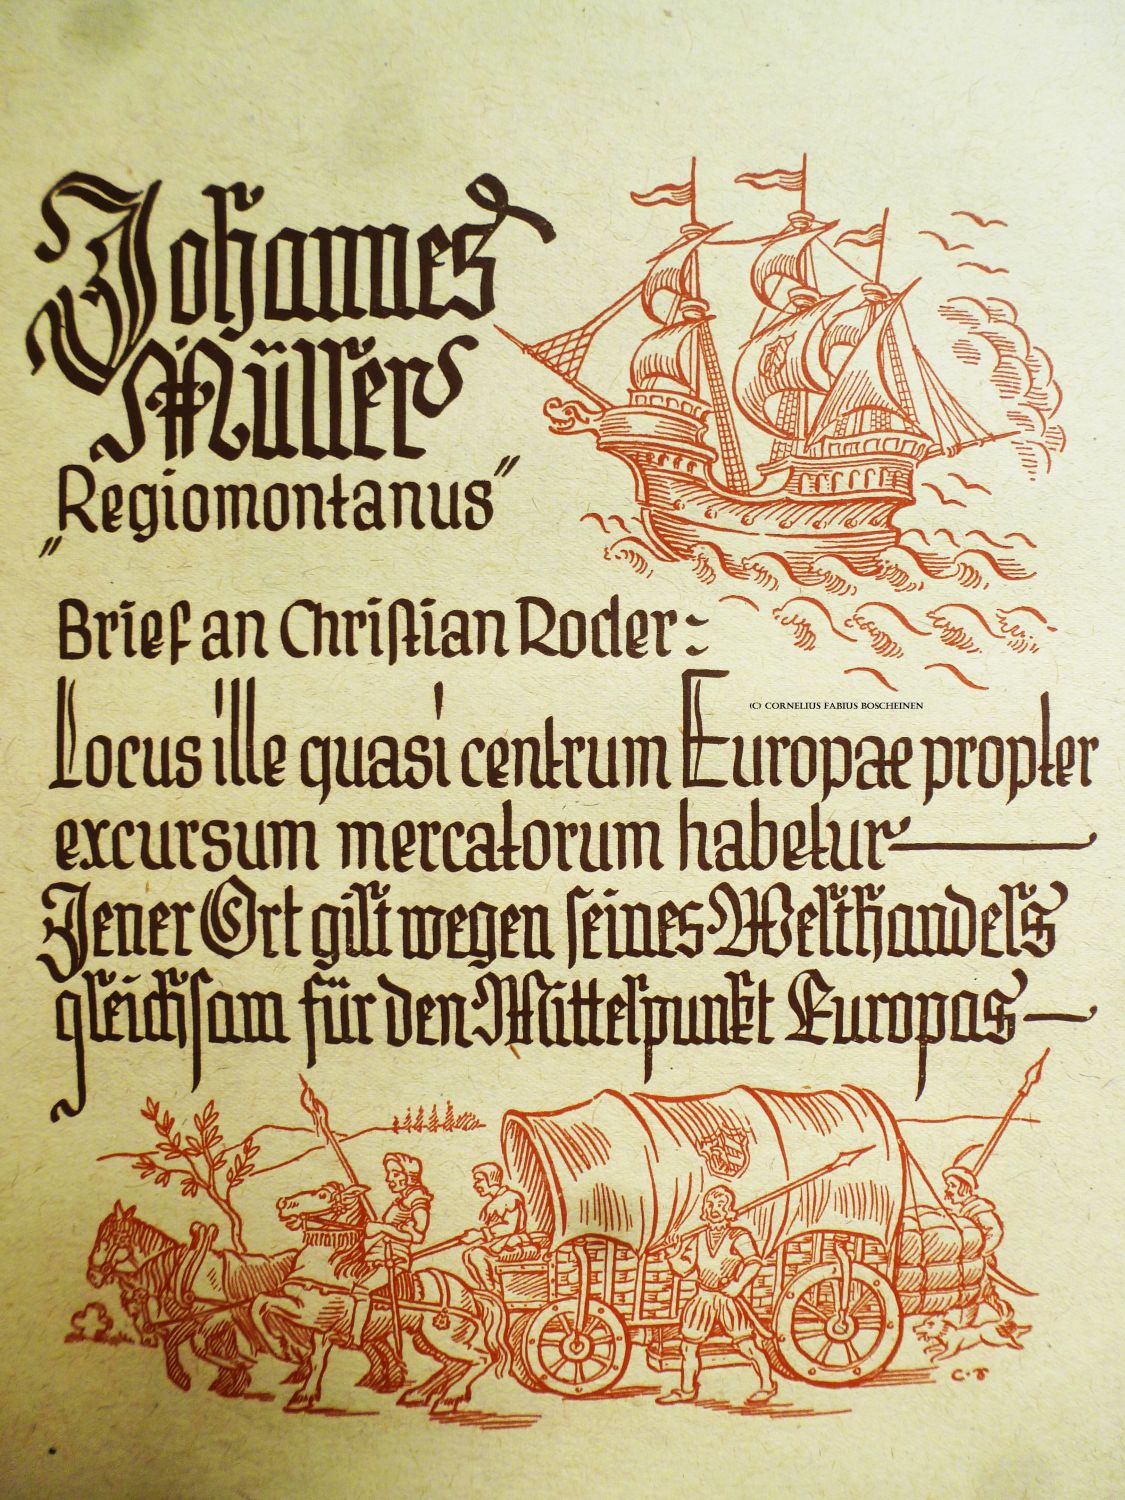 Johannes
Müller
„Regiomontanus"
Brief an Christian Roder:
(C) CORNELIUS FABIUS BOSCHEINEN
Locus ille quasi centrum Europae propter
excursum mercatorum habetur
Jener Ort gilt wegen seines Welthandels
gleichsam für den Mittelpunkt Europas